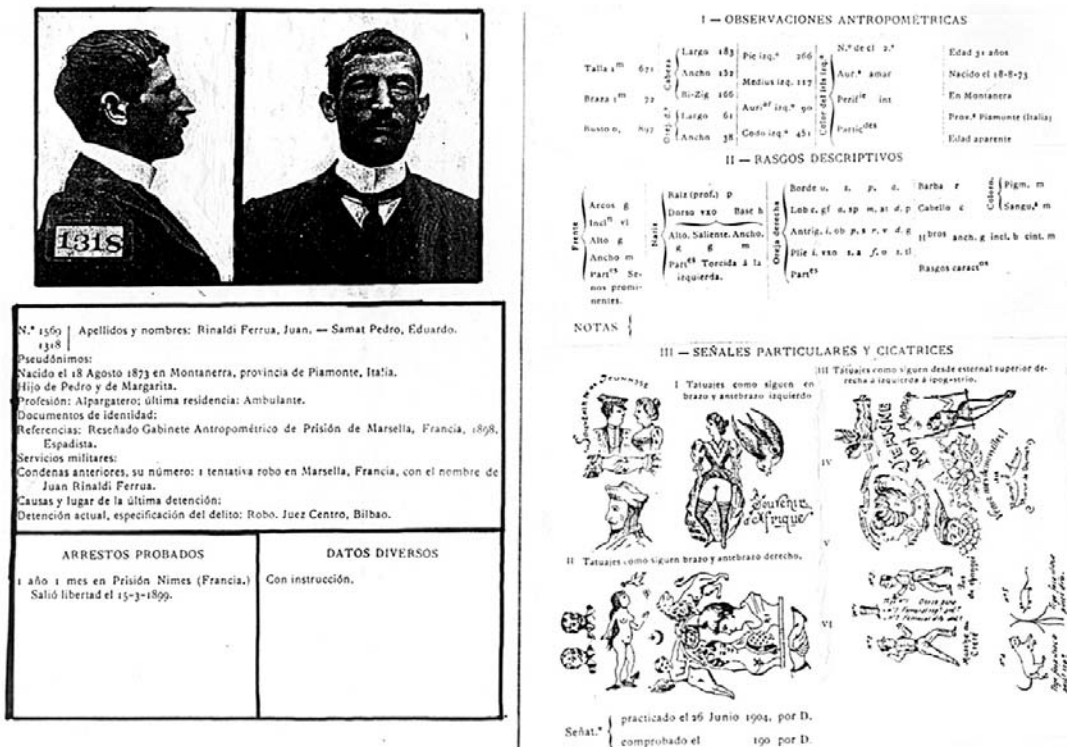 1318
N.º 1569 Apellidos y nombres: Rinaldi Ferrua, Juan. — Samat Pedro, Eduardo.
1318
Pseudónimos:
Nacido el 18 Agosto 1873 en Montanerra, provincia de Piamonte, Italia.
Hijo de Pedro y de Margarita.
Profesión: Alpargatero; última residencia: Ambulante.
Documentos de identidad:
Referencias: Reseñado Gabinete Antropométrico de Prisión de Marsella, Francia, 1898.
Espadista.
Servicios militares:
Condenas anteriores, su número: 1 tentativa robo en Marsella, Francia, con el nombre de
Juan Rinaldi Ferrua.
Causas y lugar de la última detención:
Detención actual, especificación del delito: Robo. Juez Centro, Bilbao.
ARRESTOS PROBADOS
1 año 1 mes en Prisión Nimes (Francia.)
Salió libertad el 15-3-1899.
DATOS DIVERSOS
Con instrucción.
I — OBSERVACIONES ANTROPOMÉTRICAS
Talla 1m 671
Braza 1m 72
Busto 0, 897
Cabeza
Largo 183
Ancho 152
Bi-Zig 166
Orej. d.ª
Largo 61
Ancho 38
Pie izq.º 266
Medius izq. 117
Auriar izq.º 90
Codo izq.º 451
Color del iris izq.º
N.º de cl 2.ª
Aur.ª amar
Perifie int
Particdes
Edad 31 años
Nacido el 18-8-73
En Montanera
Prov.ª Piamonte (Italia)
Edad aparente
II — RASGOS DESCRIPTIVOS
Frente
Arcos g
Incln vi
Alto g
Ancho m
Partes Se-
nos promi-
nentes.
Nariz
Raiz (prof.) p
Dorso vxo Base h
Alto. Saliente. Ancho.
g g m
Partes Torcida á la
izquierda.
Oreja derecha
Borde o, s, p,
Lob c. gf a, sp m, at d. p
Antrig. i, ob p, s r, v d. g
Plie i. vxo s. a f, o s. tl
Partes
Barba r
Cabello c
Hbros anch. g incl. b cint. m
Rasgos caractos
Colorn.
Pigm. m
Sangu.ª m
NOTAS
III — SEÑALES PARTICULARES Y CICATRICES
I Tatuajes como siguen en
brazo y antebrazo izquierdo
Souvenir
d'Afrique
II Tatuajes como siguen brazo y antebrazo derecho.
III Tatuajes como siguen desde esternal superior de-
recha á izquierda á ipogastrio.
IV
JENNNE
MON AMOUR
V
VI
Señat.º
practicado el 26 Junio 1904, por D.
comprobado el 190 por D.